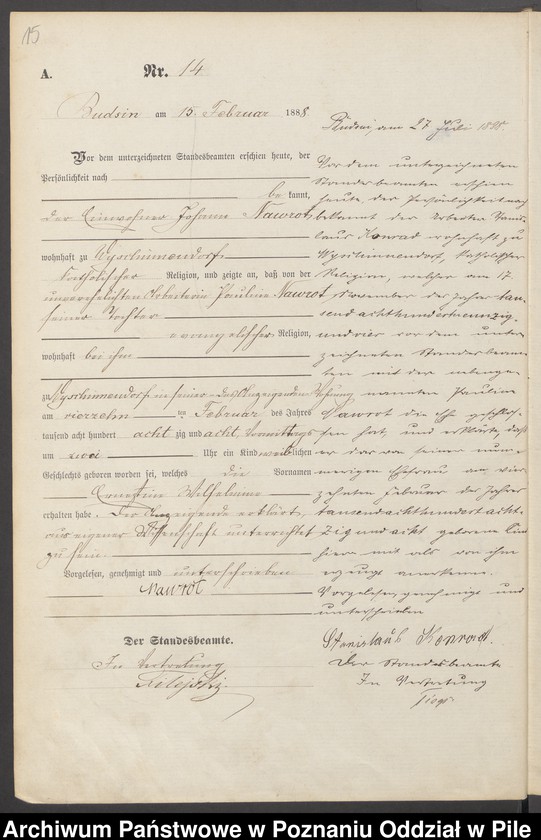 15
A.
Nr. 14
Budsin am 15. Februar 1888.
Vor dem unterzeichneten Standesbeamten erschien heute, der
Persönlichkeit nach
be kannt,
der Einwohner Johann Nawrot,
wohnhaft zu Wyschinnendorf
katholischer Religion, und zeigte an, daß von der
unverehelichten Arbeiterin Pauline Nawrot,
seiner Tochter
evangelischer Religion,
wohnhaft bei ihm
zu Wyschinnendorf in seiner des Anzeigenden Wohnung
am vierzehn ten Februar des Jahres
tausend acht hundert acht zig und acht, Vormittags
um zwei Uhr ein Kind weiblichen
Geschlechts geboren worden sei, welches die Vornamen
Ernestine Wilhelmine
erhalten habe. Der Anzeigende erklärt,
aus eigener Wissenschaft unterrichtet
zu sein.
Vorgelesen, genehmigt und unterschrieben
Nawrot
Der Standesbeamte.
In Vertretung
Budsin, am 27 Juli
Vor dem unterzeichneten
Standesbeamten erschien
heute, der Persönlichkeit nach
bekannt, der Arbeiter Stanis-
laus Konrad wohnhaft zu
Wyschinnendorf, katholischer
Religion, welcher am 17.
November des Jahres tau-
send achthundertneunzig
und vier vor dem unter-
zeichneten Standesbeam-
ten mit der ledigen
Pauline
Nawrot die Ehe geschlos-
sen hat, und erklärte, daß
er das von seiner nun-
merigen Ehefrau am vier-
zehnten Februar des Jahres
tausendachthundertacht-
zig und acht geborene Kind
hiermit als von ihm
erzeugt anerkenne.
Vorgelesen, genehmigt und
unterschrieben
Stanislaus Konrad.
Der Standesbeamte
In Vertretung
Archiwum Państwowe w Poznaniu Oddział w Pile